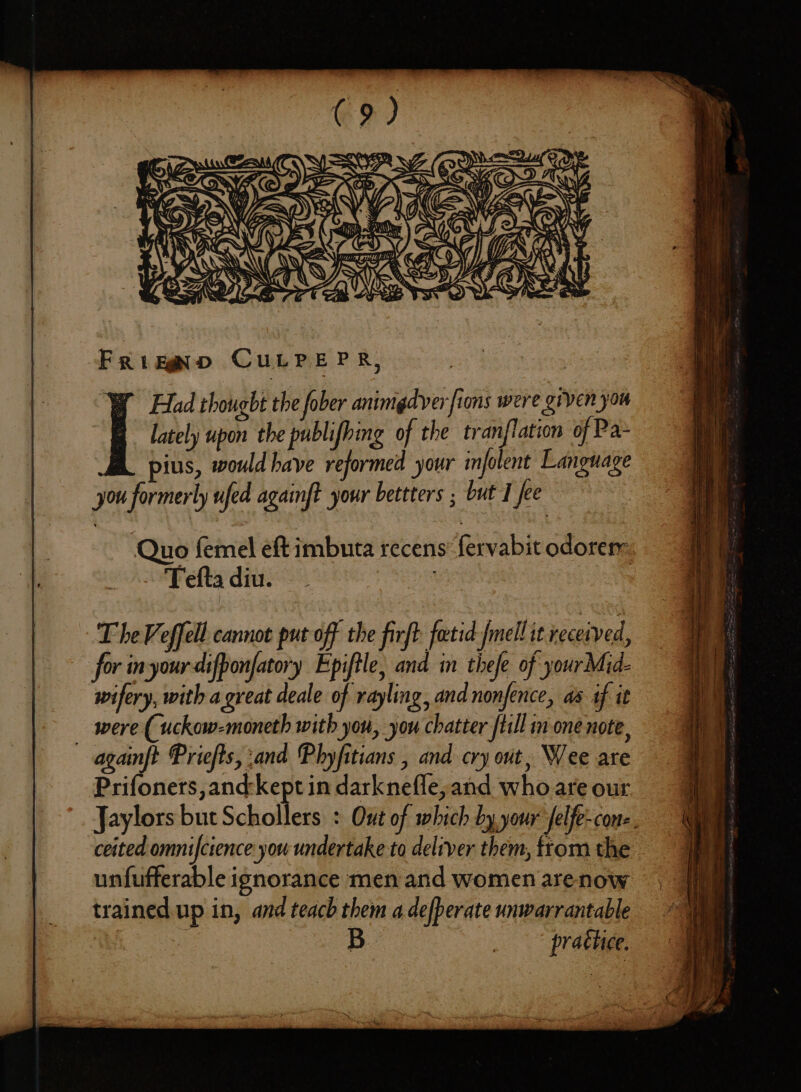 (9)
FRIEND CULPEPR,
I Had thought the ſober animadverſions were given you
lately upon the publiſhing of the tranſlation of Pa-
pius, would have reformed your inſolent Language
you formerly uſed againſt your bettters ; but I ſee
Quo ſemel eſt imbuta recens ſervabit odorem
Teſta diu.
The Veſſell cannot put off the firſt fœtid ſmell it received,
for in your diſponſatory Epiſtle, and in theſe of your Mid-
wifery, with a great deale of rayling, and nonſence, as if it
were Cuckow-moneth with you, you chatter ſtill in one note,
againſt Prieſts, and Phyſitians , and cry out, Wee are
Priſoners, and kept in darkneſſe, and who are our
Jaylors but Schollers : Out of which by your ſelfe-con-
ceited omniſcience you undertake to deliver them, from the
unſufferable ignorance men and women are now
trained up in, and teach them a deſperate unwarrantable
B practice.